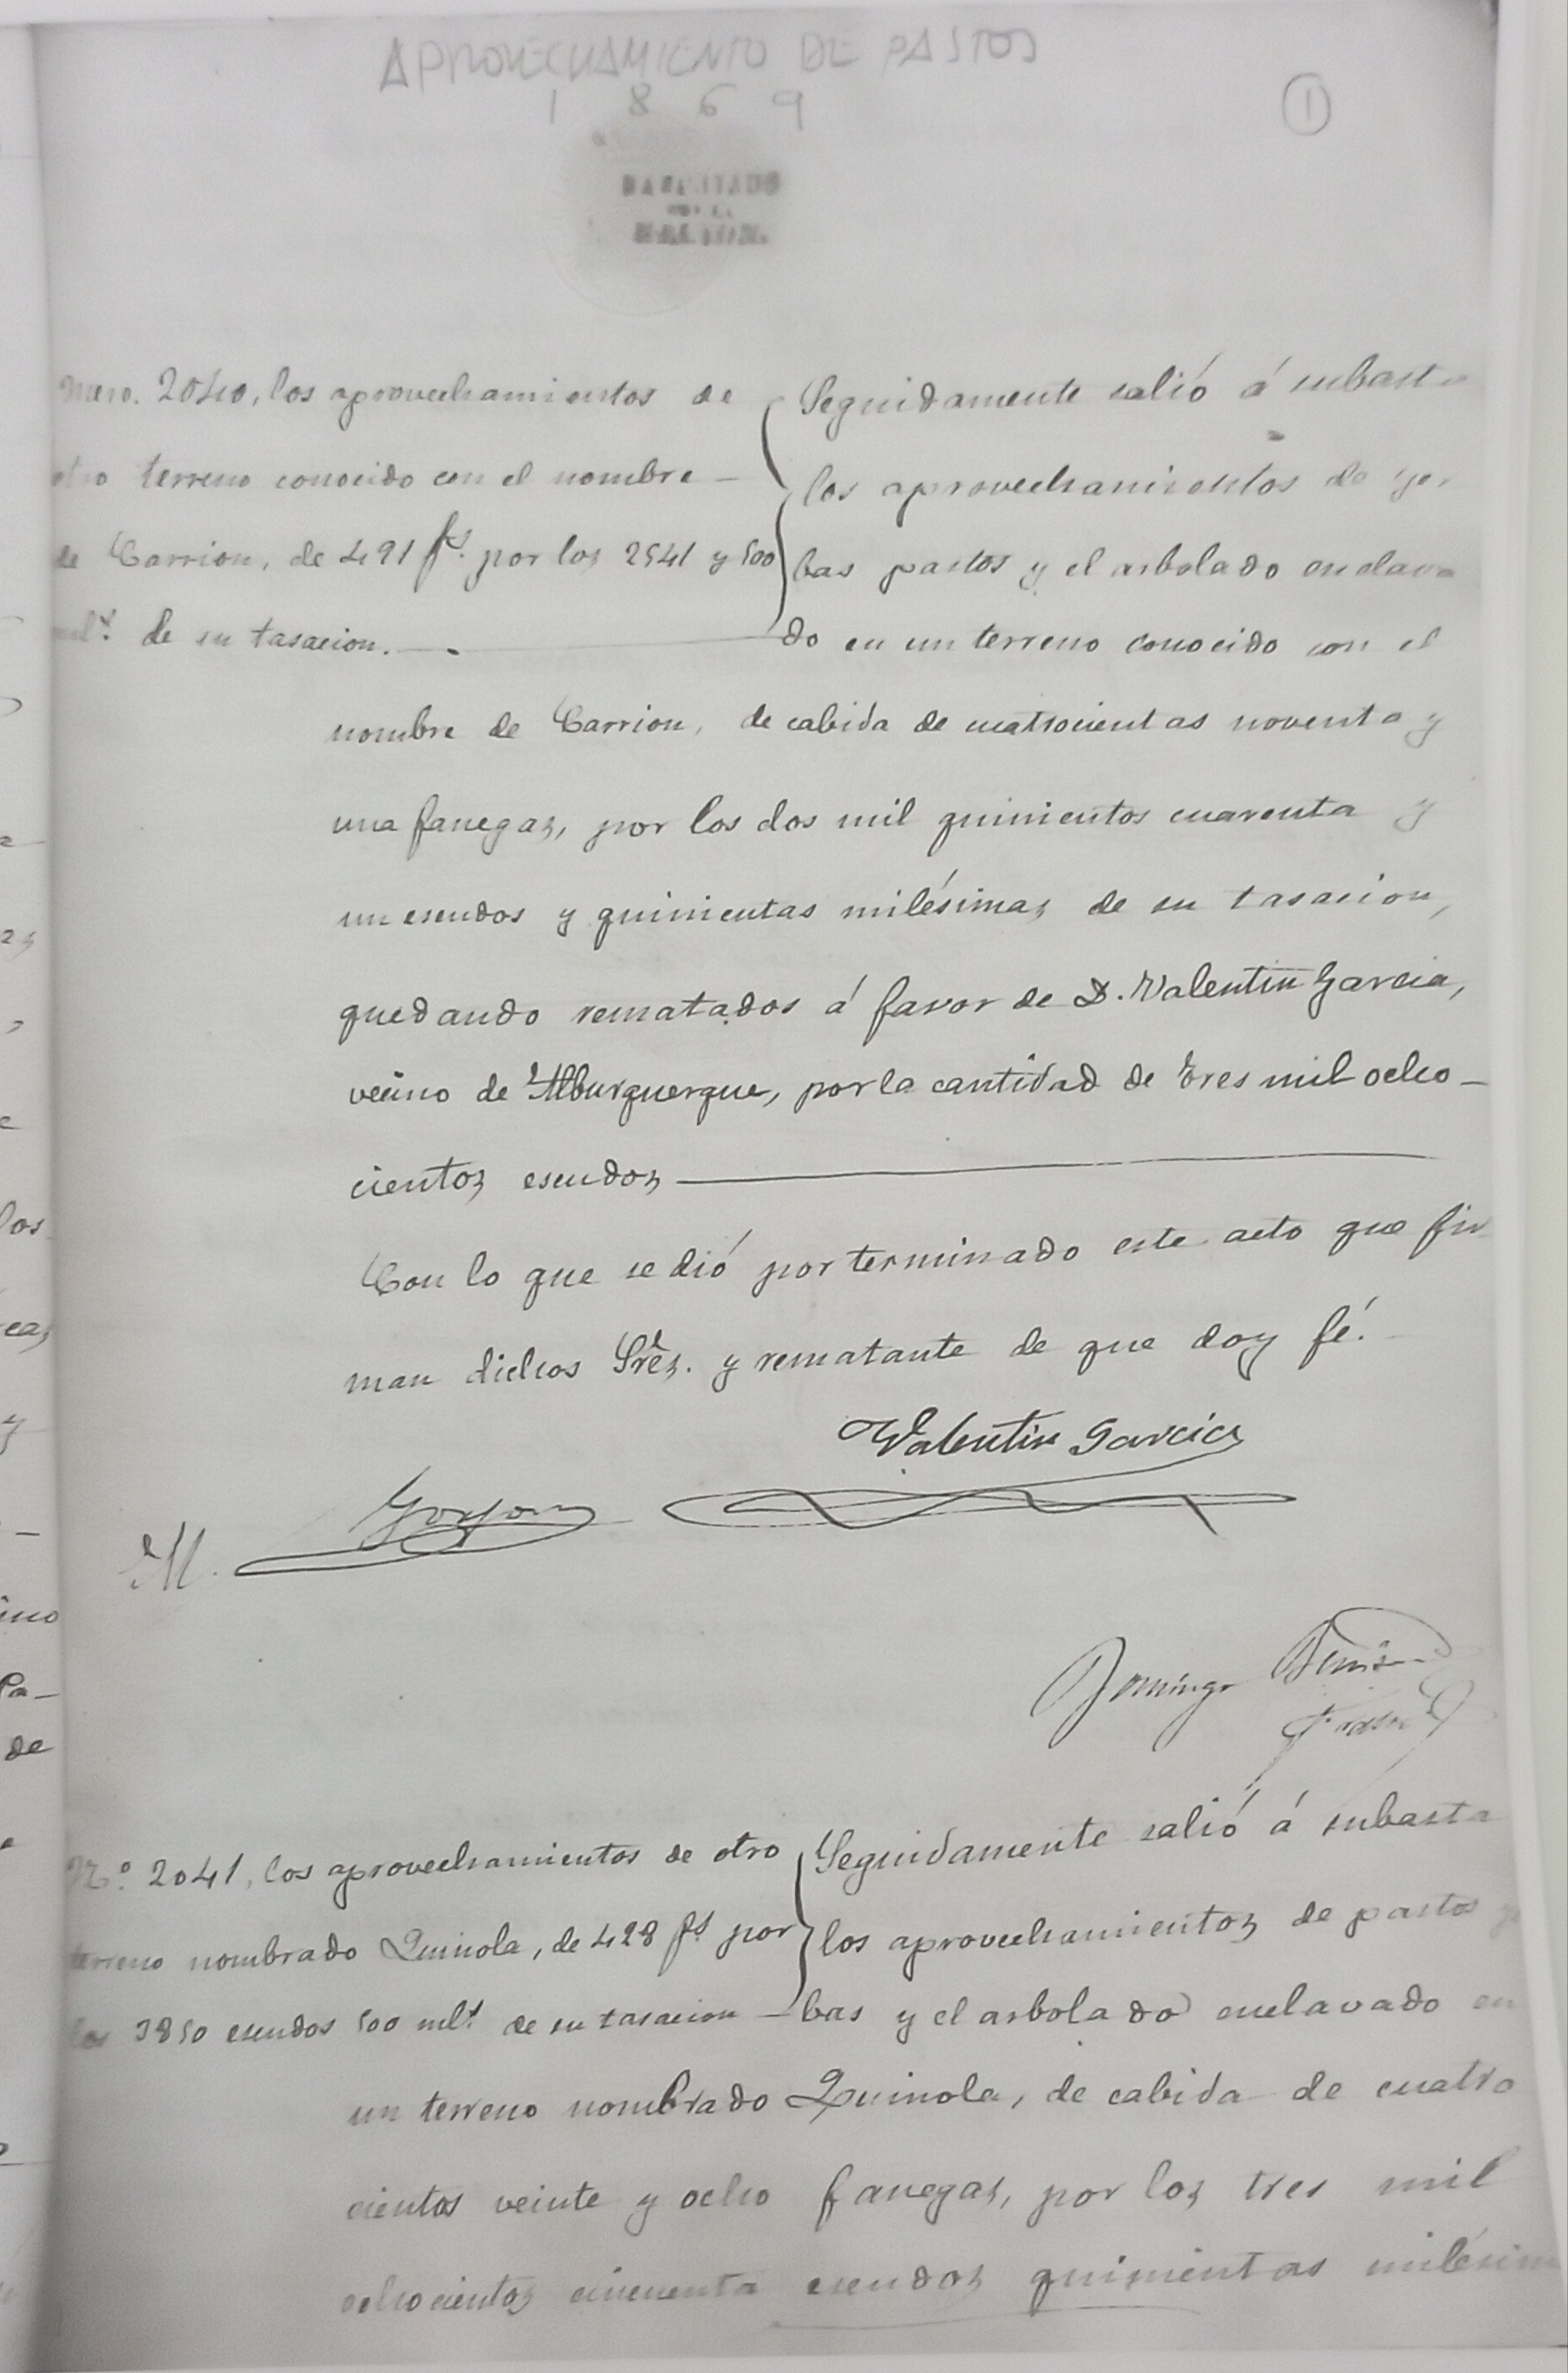 APROVECHAMIENTO DE PASTOS
1869
1
HABILITADO
POR LA
NACION.
Num. 2040, los aprovechamientos de
otro terreno conocido con el nombre —
de Carrion, de 491 f.s por los 2541 y 500
mil.s de su tasacion. —
Seguidamente salió á subasta
los aprovechamientos de yer
bas pastos y el arbolado enclava
do en un terreno conocido con el
nombre de Carrion, de cabida de cuatrocientas noventa y
una fanegas, por los dos mil quinientos cuarenta y
un escudos y quinientas milésimas de su tasacion,
quedando rematados á favor de D. Valentin Garcia,
vecino de Alburquerque, por la cantidad de tres mil ocho —
cientos escudos —
Con lo que se dió por terminado este acto que fir
man dichos Sres. y rematante de que doy fé.
Valentin Garcia
M.
Domingo
N.º 2041, los aprovechamientos de otro
terreno nombrado Quinola, de 428 f.s por
los 3850 escudos 500 mil.s de su tasacion —
Seguidamente salió á subasta
los aprovechamientos de pastos
bas y el arbolado enclavado en
un terreno nombrado Quinola, de cabida de cuatro
cientos veinte y ocho fanegas, por los tres mil
ochocientos cincuenta escudos quinientas milésim